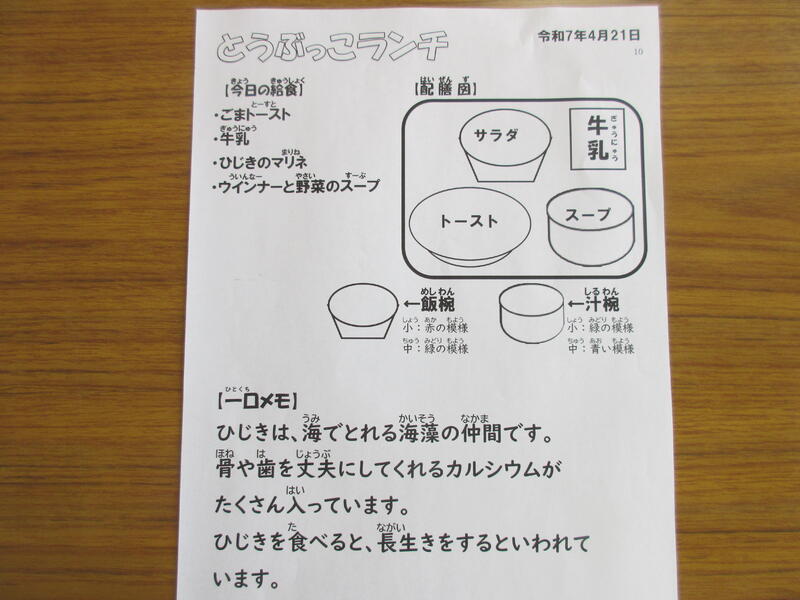 とうぶっこランチ
令和7年4月21日
10
【今日の給食】
・ごまトースト
・牛乳
・ひじきのマリネ
・ウインナーと野菜のスープ
【配膳図】
サラダ
牛乳
トースト
スープ
←飯椀
小：赤の模様
中：緑の模様
←汁椀
小：緑の模様
中：青い模様
【一口メモ】
ひじきは、海でとれる海藻の仲間です。
骨や歯を丈夫にしてくれるカルシウムが
たくさん入っています。
ひじきを食べると、長生きをするといわれて
います。